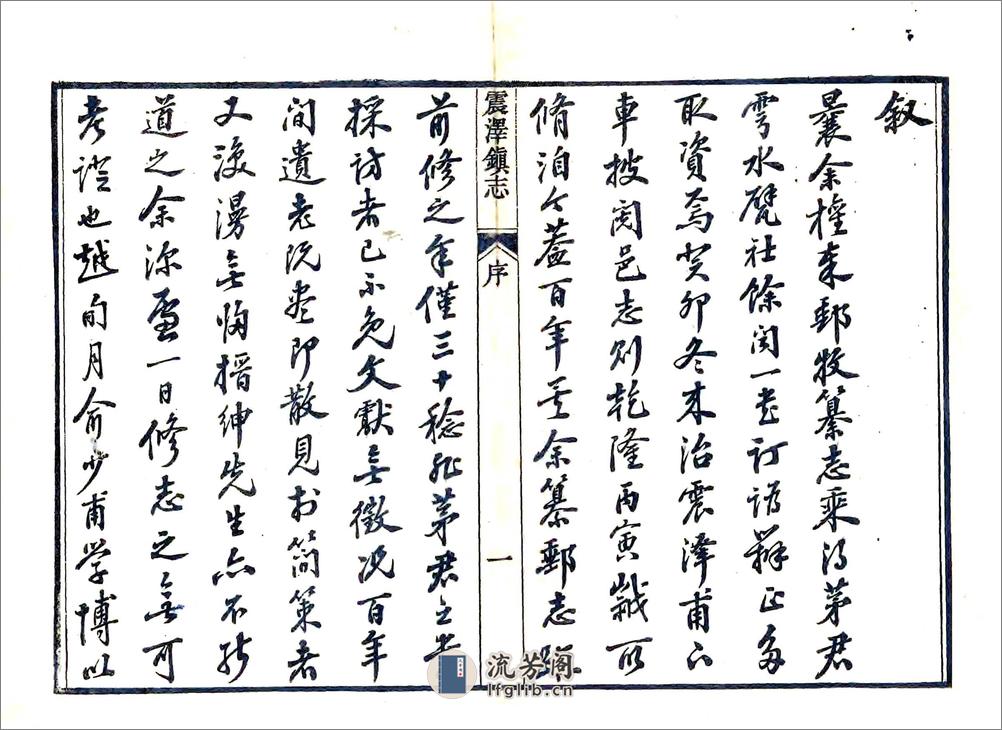 叙
曩余權秦郵牧纂志乘得茅君
雩水甓社餘聞一書訂譌辨正多
取資焉癸卯冬來治震澤甫下
車披閱邑志則乾隆丙寅歲所
脩洎今蓋百年矣余纂郵志
震澤鎮志 序 一
前修之年僅三十稔非茅君之先
採訪者已不免文獻無徵況百年
間遺老既盡即散見於簡策者
又漫無搢紳先生亦不能
道之余深慮一日修志之無可
考證也越旬月俞少甫學博以
流芳阁
lfglib.cn